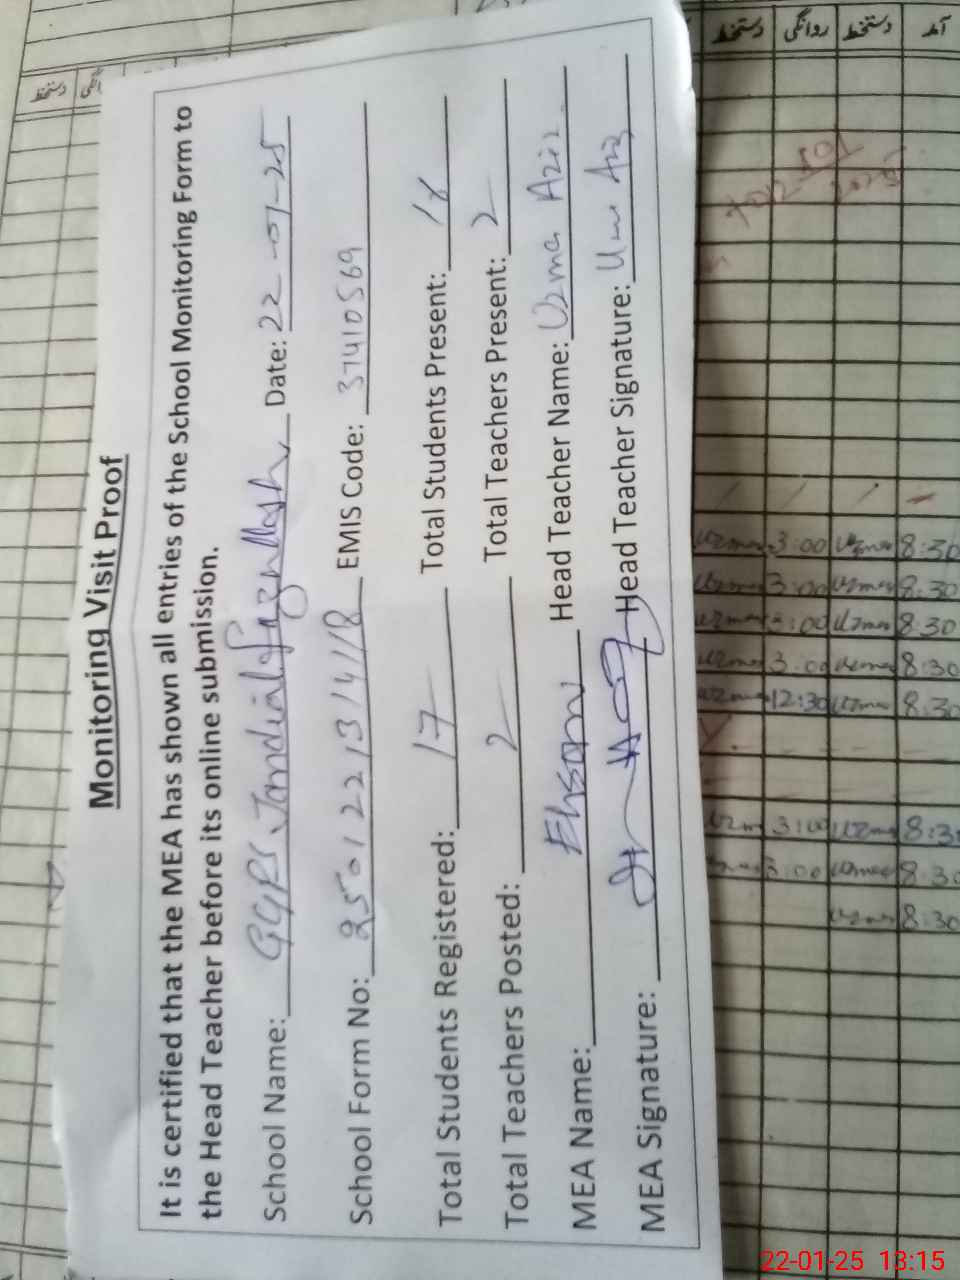 Monitoring Visit Proof
It is certified that the MEA has shown all entries of the School Monitoring Form to
the Head Teacher before its online submission.
School Name: GGPS Jandial Fazullah Date: 22-01-25
School Form No: 2501221314118 EMIS Code: 37410569
Total Students Registered: 17 Total Students Present:
Total Teachers Posted: 2 Total Teachers Present: 2
MEA Name: Ehsan Head Teacher Name: Uzma Aziz
MEA Signature: Head Teacher Signature: Uzma Aziz
آمد دستخط روانگی دستخط
8:30 Uzma 3:00 Uzma
8:30 Uzma 3:00 Uzma
8:30 Uzma 3:00 Uzma
8:30 Uzma 3:00 Uzma
8:30 Uzma 12:30 Uzma
8:30 Uzma 3:00 Uzma
8:30 Uzma 3:00 Uzma
8:30 Uzma
22-01-25 13:15